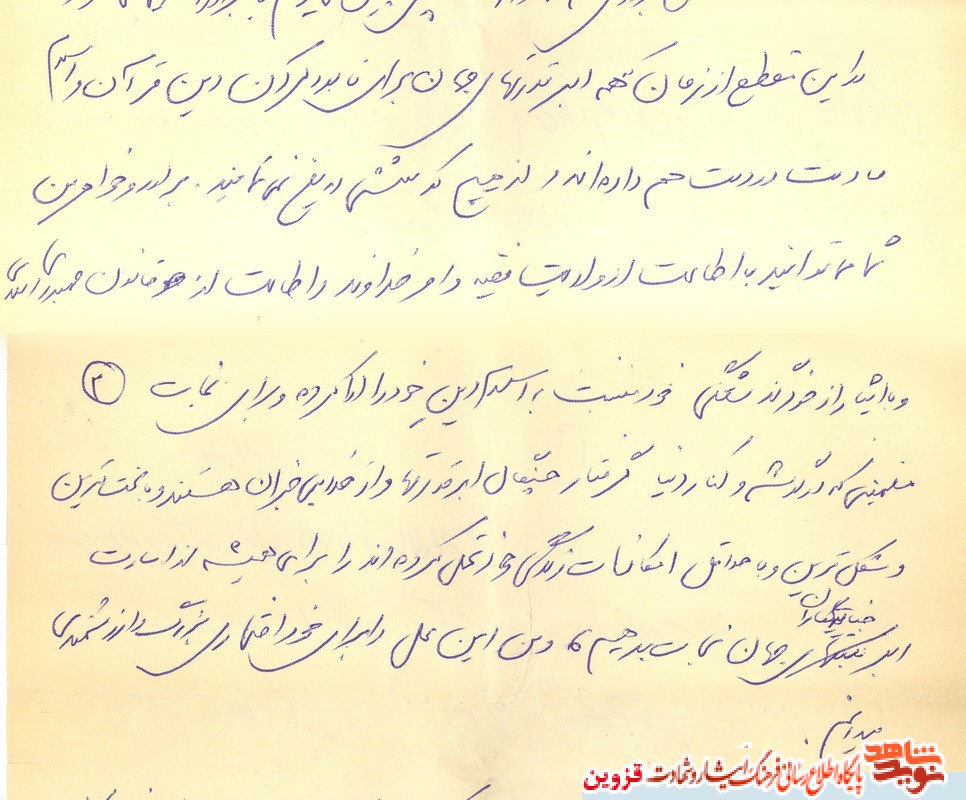 در این مقطع از زمان که همه ابرقدرتهای جهان برای نابود کردن دین قرآن و اسلام
ما دست در دست هم داده‌اند و از هیچ کوششی دریغ نمی‌نمایند. برادر و خواهر من
شما می‌توانید با اطاعت از ولایت فقیه و امر خداوند و اطاعت از قانون جمهوری اسلامی
و با ایثار از خود گذشتگی خود نسبت به اسلام دین خود را ادا کرده و برای نجات ۳
مسلمینی که در گوشه و کنار دنیا گرفتار چنگال ابرقدرتها و از خدا بی‌خبران هستند و با سخت‌ترین
و مشکل‌ترین و با حداقل امکانات زندگی خو تحمل کرده‌اند را برای همیشه از اسارت
ابر جنایتکاران جهان نجات بدهیم و من این عمل را برای خود افتخاری بزرگ و ارزشمندی
میدانم.
نوید شاهد
پایگاه اطلاع رسانی فرهنگ ایثار و شهادت قزوین